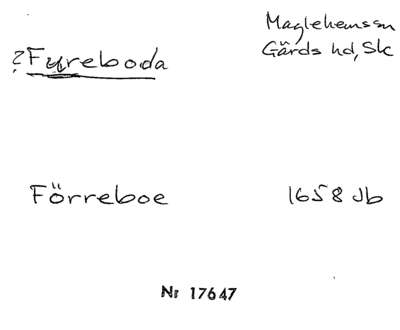 Maglehemssn
?Fureboda
Gärds hd, Sk
Förreboe 1658 Jb
Nr 17647